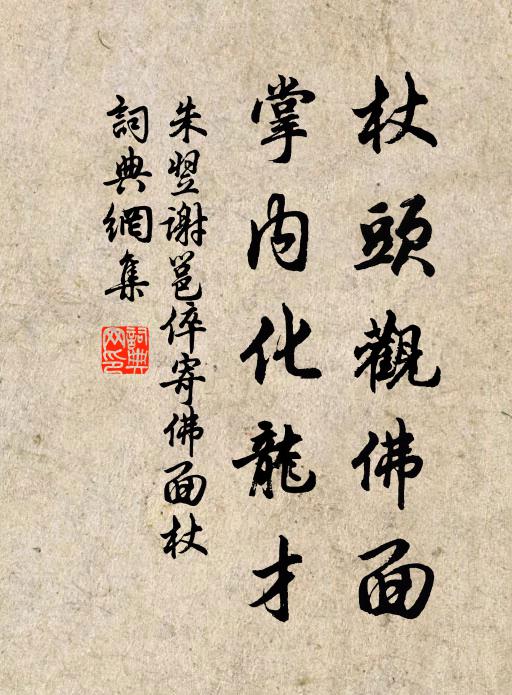 杖頭觀佛面
掌内化龍才
朱翌謝邕倅寄佛面杖
詞典網集
詞典網印